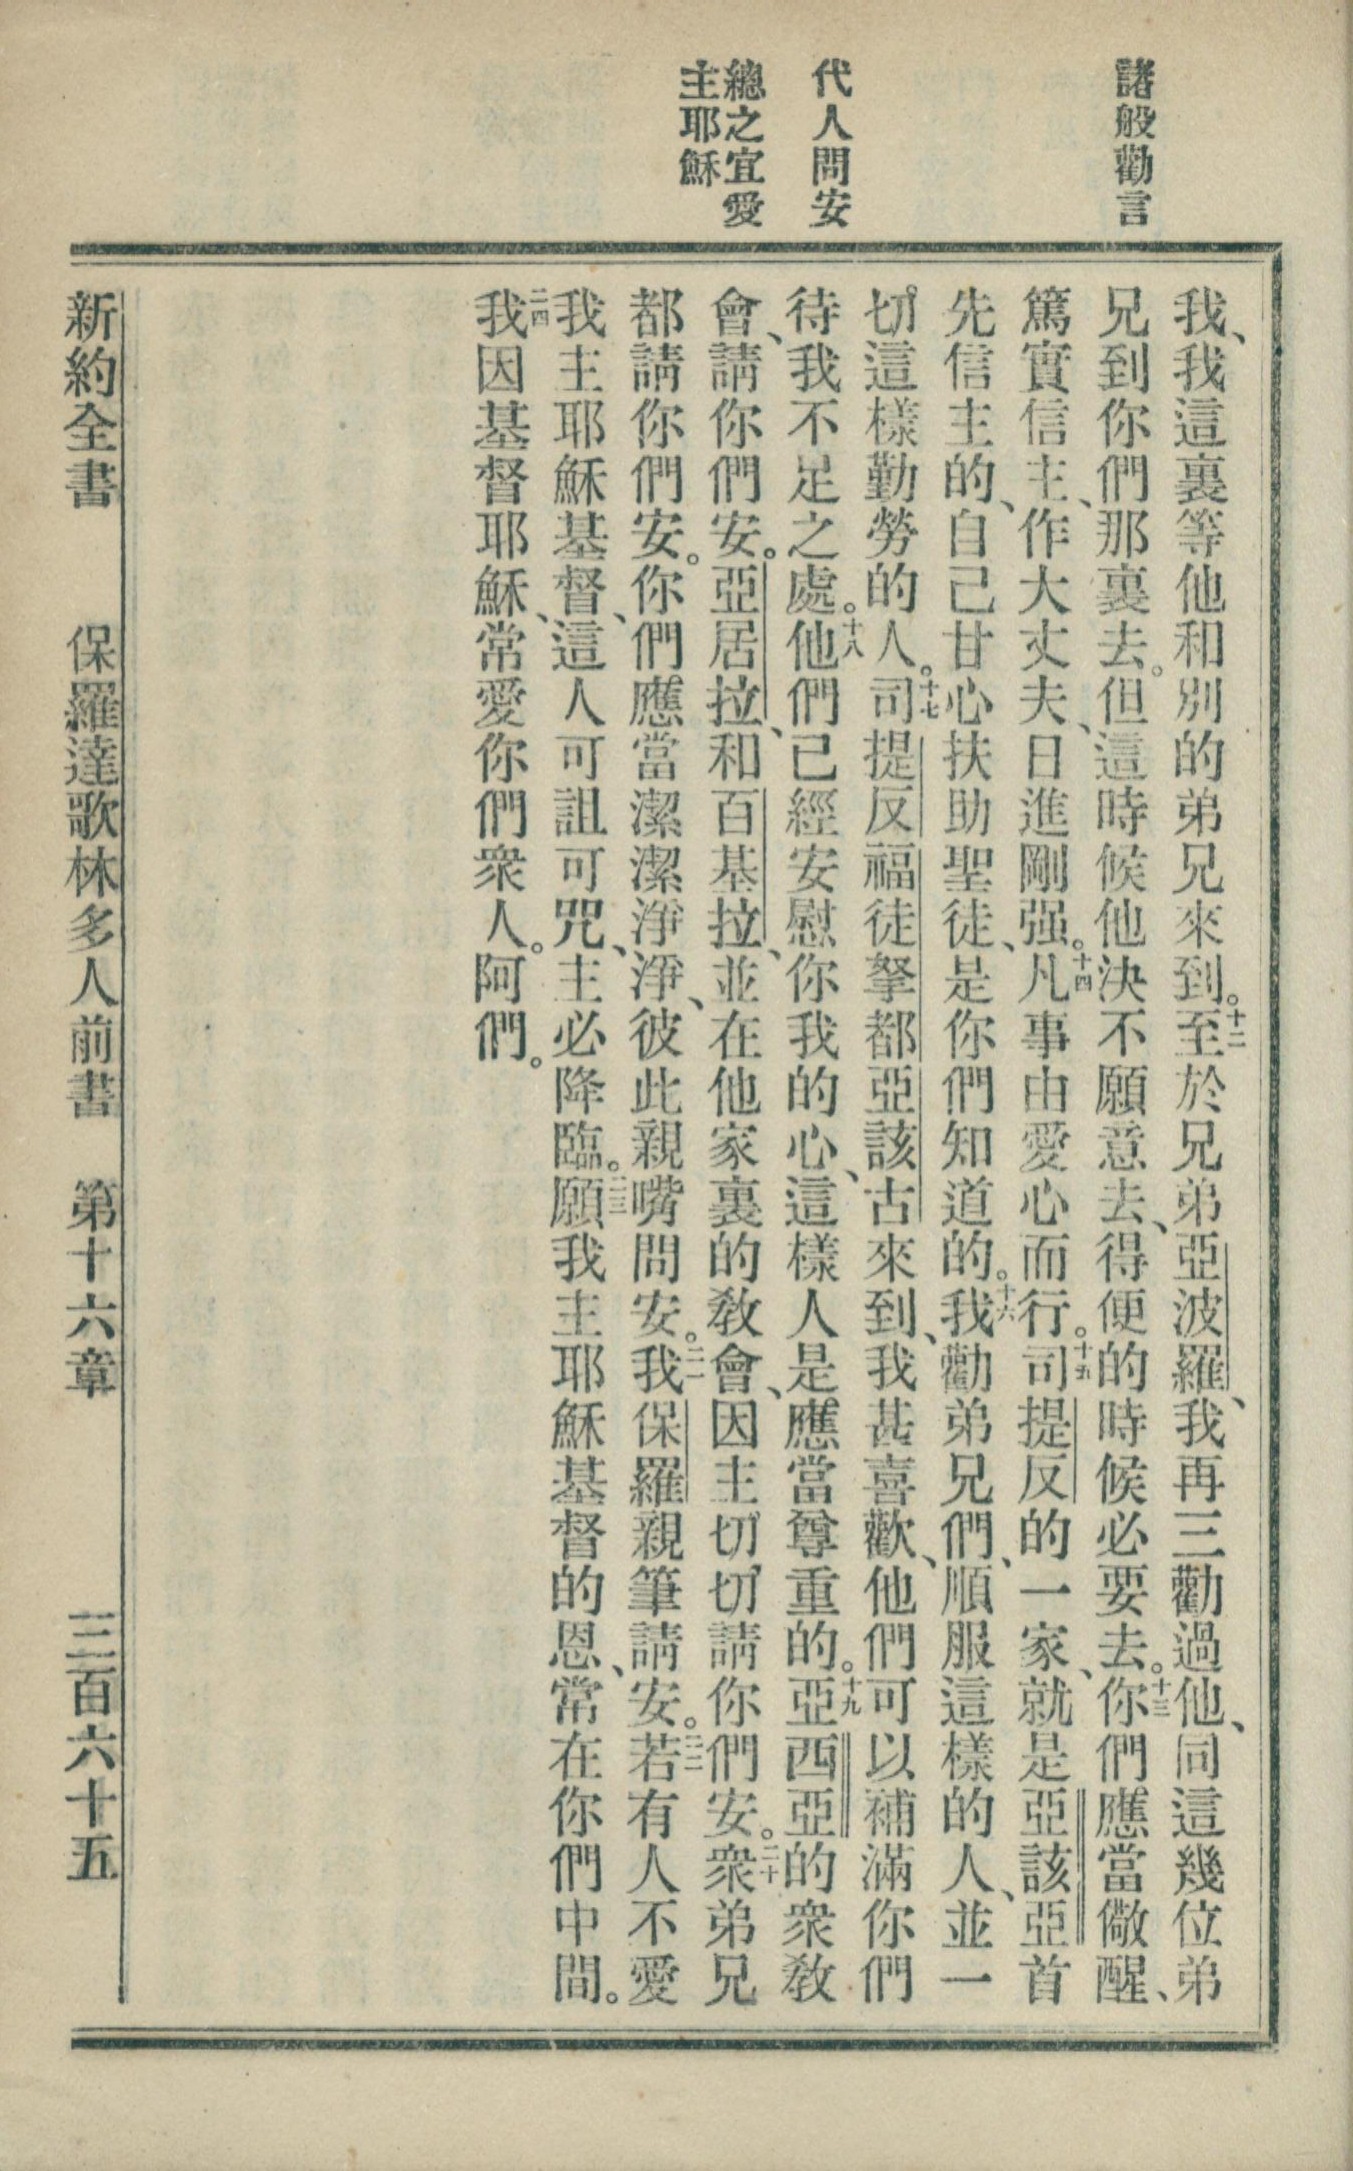 諸般勸言
代人問安
總之宜愛
主耶穌
我、我這裏等他和別的弟兄來到。十二至於兄弟亞波羅、我再三勸過他、同這幾位弟
兄到你們那裏去。但這時候他決不願意去、得便的時候必要去。十三你們應當儆醒、
篤實信主、作大丈夫、日進剛强。十四凡事由愛心而行。十五司提反的一家、就是亞該亞首
先信主的、自己甘心扶助聖徒、是你們知道的。十六我勸弟兄們、順服這樣的人、並一
切這樣勤勞的人。十七司提反福徒拏都亞該古來到、我甚喜歡、他們可以補滿你們
待我不足之處。十八他們已經安慰你我的心、這樣人是應當尊重的。十九亞西亞的衆教
會、請你們安。亞居拉、和百基拉、並在他家裏的教會、因主切切請你們安。二十衆弟兄
都請你們安。你們應當潔潔淨淨、彼此親嘴問安。二一我保羅親筆請安。二二若有人不愛
我主耶穌基督、這人可詛可咒、主必降臨。二三願我主耶穌基督的恩、常在你們中間。
二四我因基督耶穌、常愛你們衆人。阿們。
新約全書 保羅達歌林多人前書 第十六章 三百六十五